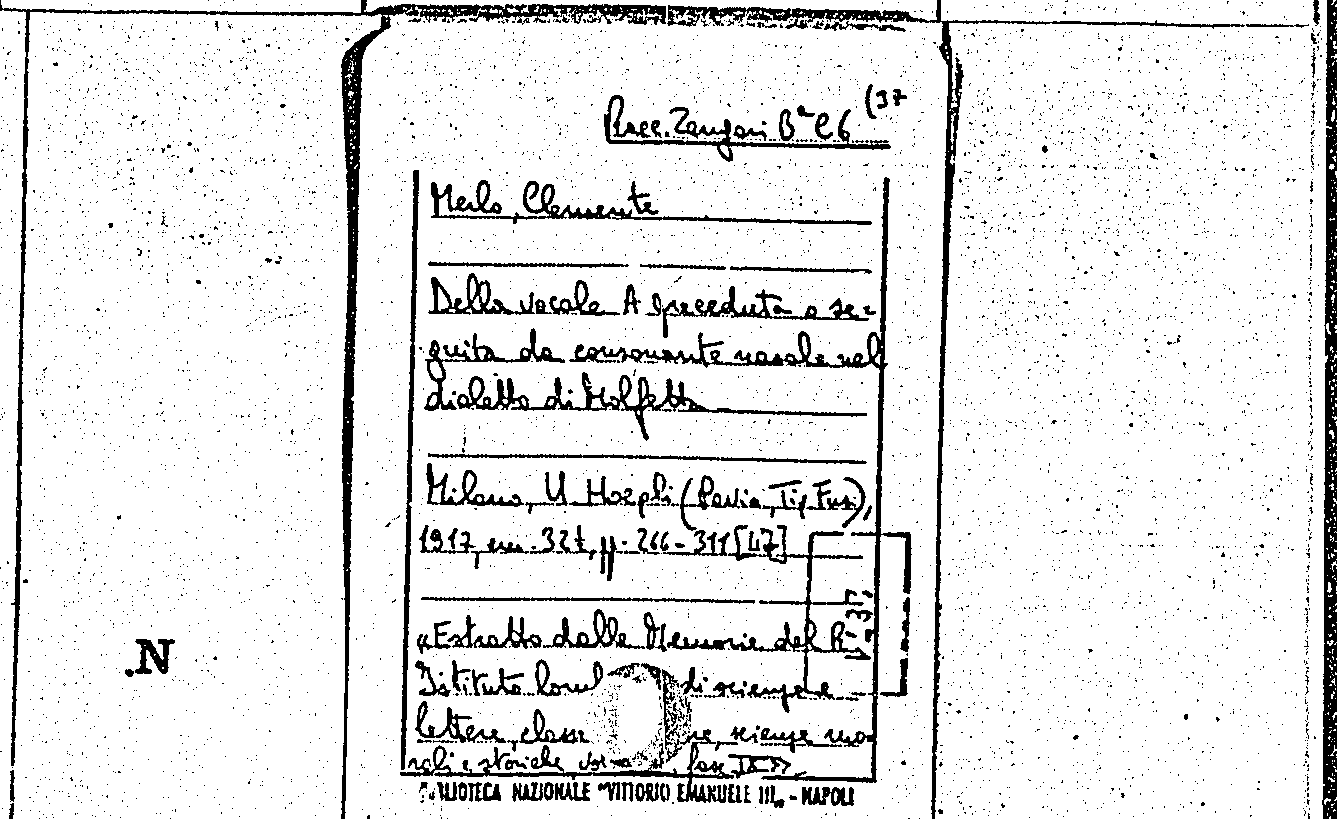 Racc. Zangari Bª C6 (37
Merlo, Clemente
Della vocale A preceduta o se=
guita da consonante nasale nel
dialetto di Molfetta
Milano, U. Hoepli (Pavia, Tip. Fusi),
1917, cm. 32½, pp. 266-311 [47]
«Estratto dalle Memorie del R.
Istituto di scienze e
lettere, classe scienze mo-
rali e storiche fasc. IX»
.N
BIBLIOTECA NAZIONALE "VITTORIO EMANUELE III„ - NAPOLI